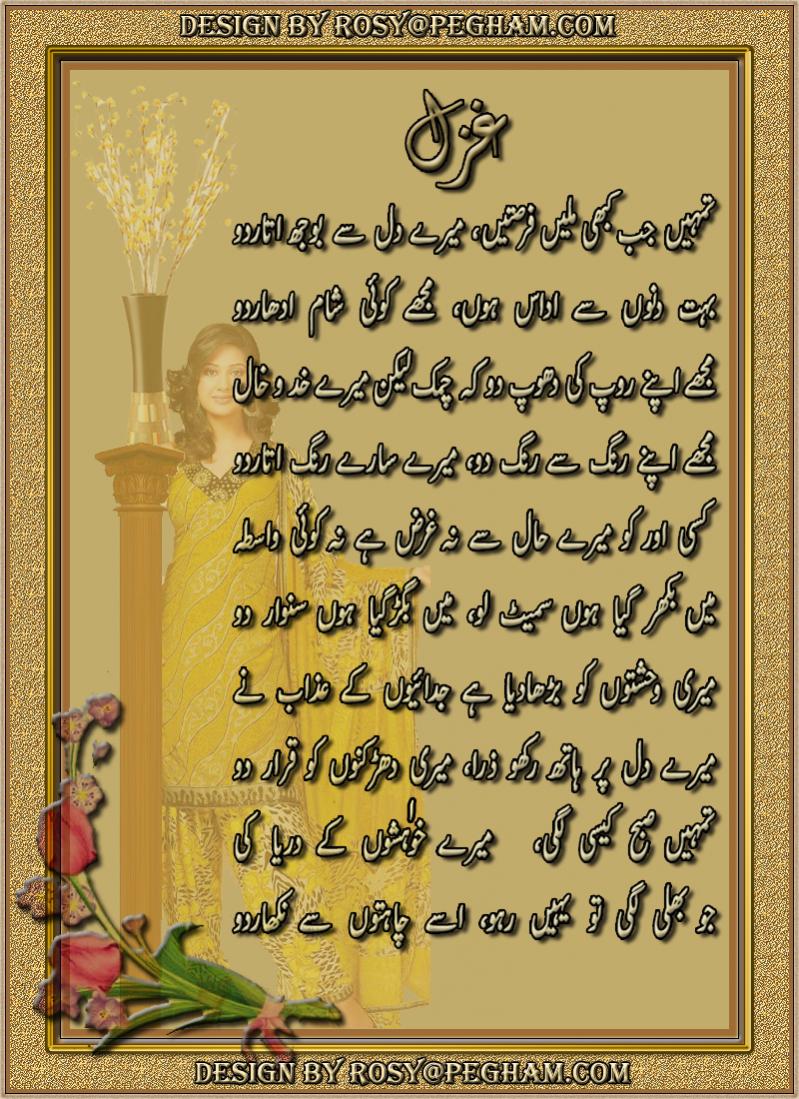 DESIGN BY ROSY@PEGHAM.COM
غزل
تمہیں جب کبھی ملیں فرصتیں، میرے دل سے بوجھ اتاردو
بہت دنوں سے اداس ہوں، مجھے کوئی شام ادھاردو
مجھے اپنے روپ کی دھوپ دو کہ چمک لیکن میرے خد و خال
مجھے اپنے رنگ سے رنگ دو، میرے سارے رنگ اتاردو
کسی اور کو میرے حال سے نہ غرض ہے نہ کوئی واسطہ
میں بکھر گیا ہوں سمیٹ لو، میں بگڑگیا ہوں سنوار دو
میری وحشتوں کو بڑھادیا ہے جدائیوں کے عذاب نے
میرے دل پر ہاتھ رکھو ذرا، میری دھڑکنوں کو قرار دو
تمہیں صبح کیسی لگی، میرے خواہشوں کے دریا کی
جو بھلی لگی تو یہیں رہو، اسے چاہتوں سے نکھاردو
DESIGN BY ROSY@PEGHAM.COM